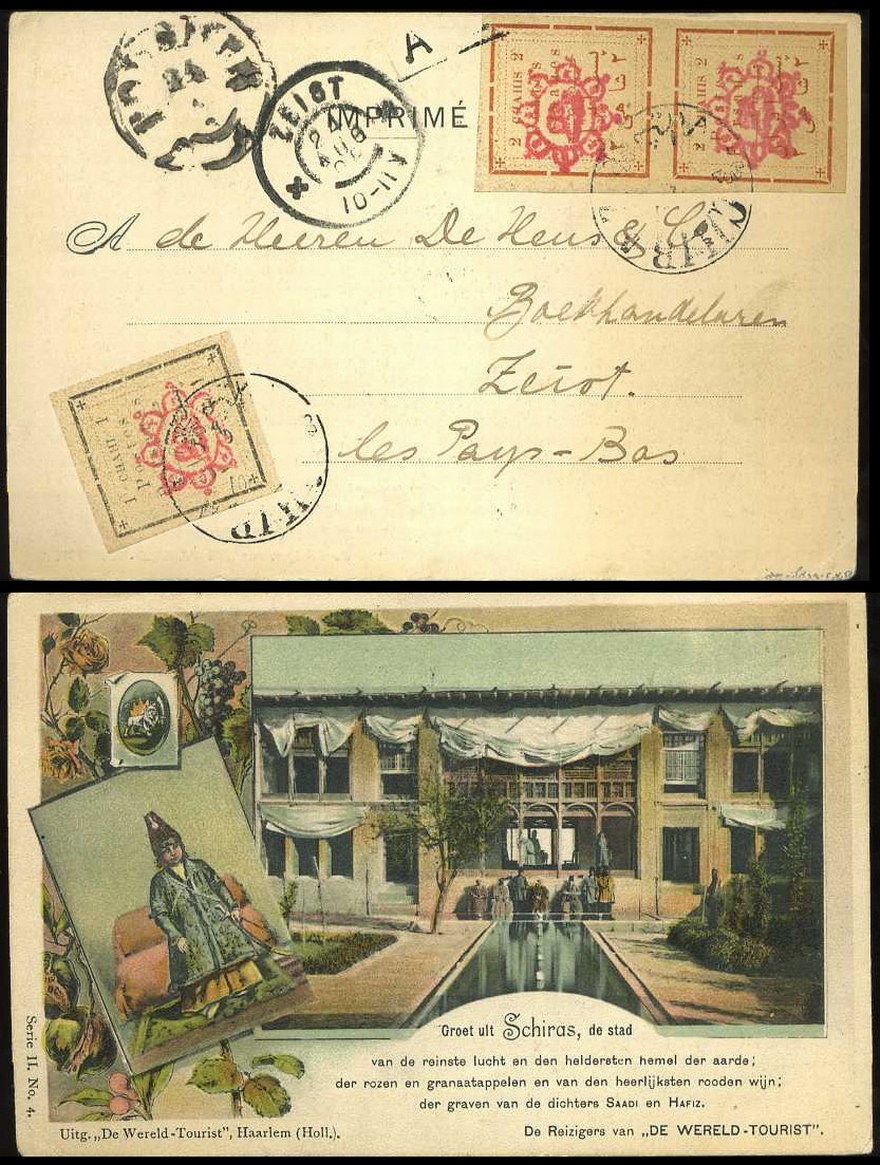 ZEIST
24 AUG
10-11V
A
IMPRIMÉ
2 CHAHIS 2
2 CHAHIS 2
A de Heeren De Heus & Co.
Boekhandelaren
Zeist.
les Pays-Bas
1 CHAHI 1
Groet uit Schiras, de stad
van de reinste lucht en den heldersten hemel der aarde;
der rozen en granaatappelen en van den heerlijksten rooden wijn;
der graven van de dichters SAADI en HAFIZ.
Serie II. No. 4.
Uitg. „De Wereld-Tourist", Haarlem (Holl.).
De Reizigers van „DE WERELD-TOURIST".